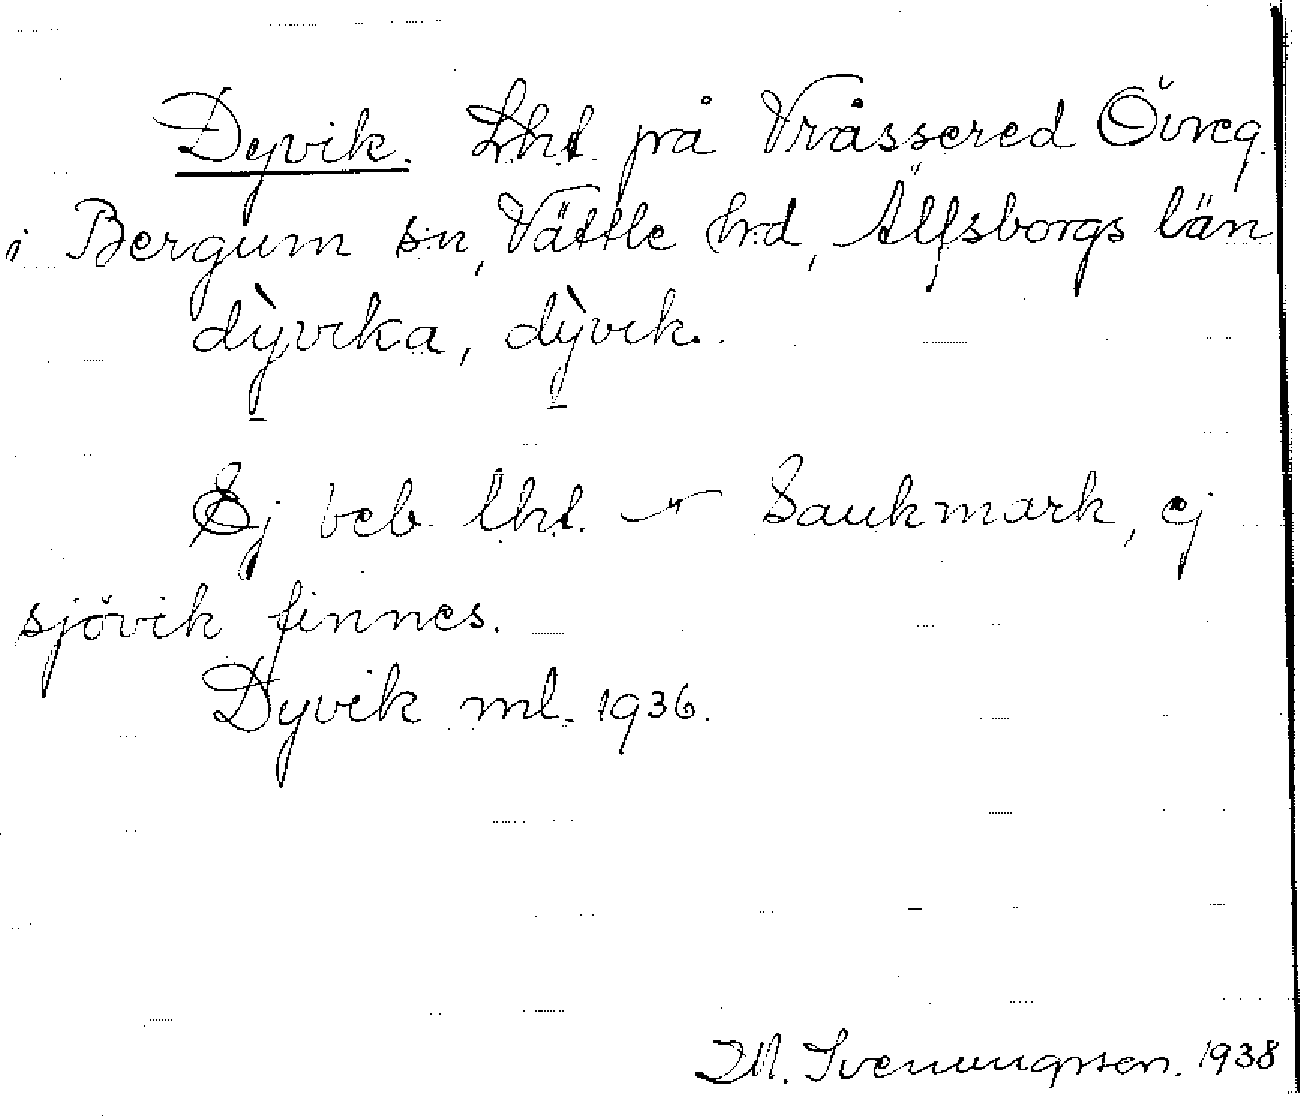 Dyvik. Lht på Vråssered Övreg.
i Bergum sn, Vättle hrd, Älfsborgs län
dỳvika, dỳvik.
Ej beb. lht. Sankmark, ej
sjövik finnes.
Dyvik ml. 1936.
M. Svenungsson. 1938